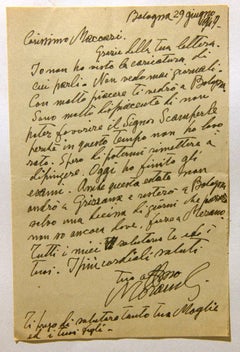 Bologna 29 giugno
1949.
Carissimo Maccari.
Grazie della tua lettera.
Io non ho visto la caricatura di
cui parli. Non vedo mai giornali.
Con molto piacere ti vedrò a Bologna
Sono molto dispiacente di non
poter favorire il Signor
perchè in questo tempo non ho lavo
rato. Spero di potermi rimettere a
dipingere. Oggi ho finito gli
esami. Anche questa estate non
andrò a Grizzana e resterò a Bologna
salvo una decina di giorni che passerò
non so ancora dove, forse a Merano
Tutti i miei salutano te ed i
tuoi. I più cordiali saluti
tuo aff.mo
Morandi
Ti prego di salutare tanto tua Moglie
ed i tuoi figli.